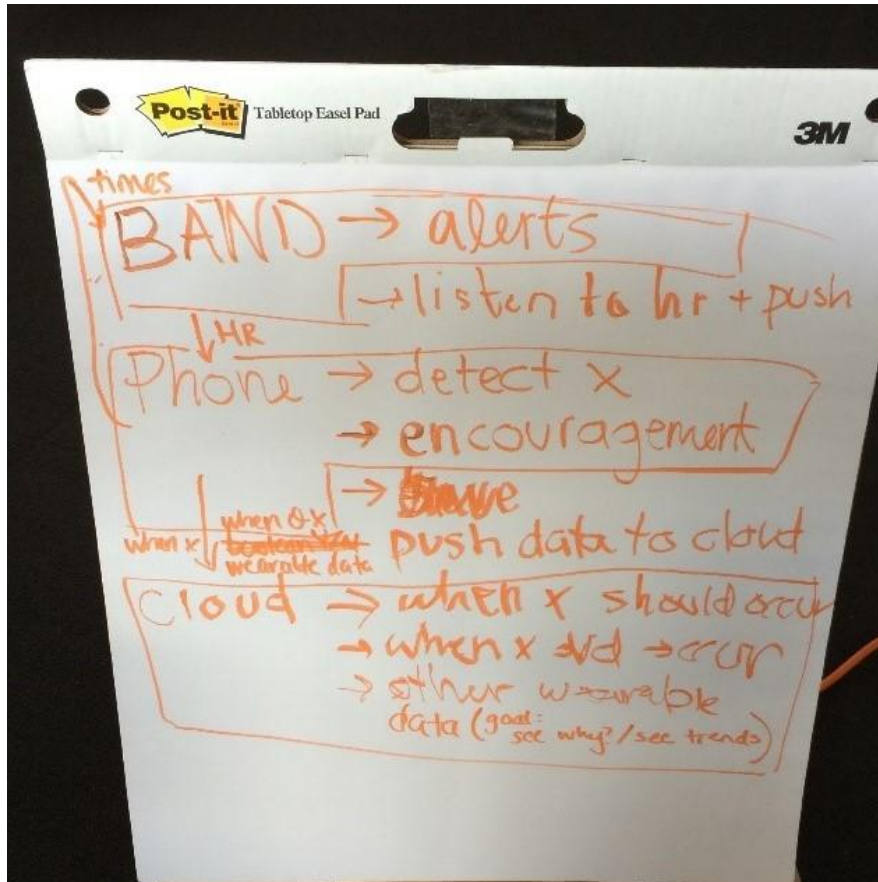 Post-it Tabletop Easel Pad
3M
times
BAND → alerts
→ listen to hr + push
↓ HR
Phone → detect x
→ encouragement
→
when x
wearable data
push data to cloud
Cloud → when x should occur
→ when x did occur
→ other wearable
data (goal:
see why?/see trends)